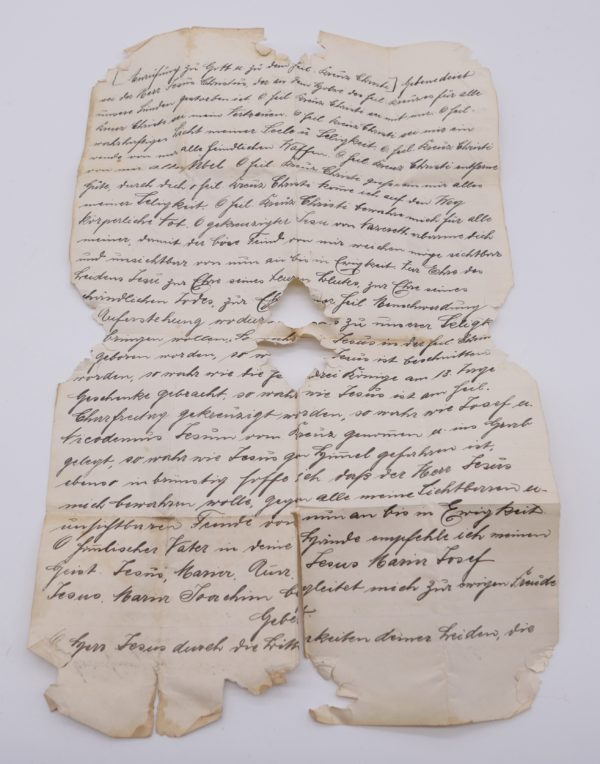 [Anrufung zu Gott u. zu dem heil. Kreuz Christi] Gebenedeit
sei der Herr Jesus Christus, der an dem Holze des heil. Kreuzes für alle
unsere Sünden gestorben ist. O heil. Kreuz Christi sei mit mir. O heil.
Kreuz Christi sei mein Vertrauen. O heil. Kreuz Christi sei mir ein
wahrhaftiges Licht meiner Seele u. Seligkeit. O heil. Kreuz Christi
wende von mir alle feindlichen Waffen. O heil. Kreuz Christi entferne
von mir alles Übel. O heil. Kreuz Christi giesse in mir alles
Gute, durch dich o heil. Kreuz Christi komme ich auf den Weg
meiner Seligkeit. O heil. Kreuz Christi bewahre mich für alle
körperliche Not. O gekreuzigter Jesu von Nazareth erbarme dich
meiner, damit der böse Feind von mir weichen möge sichtbar
und unsichtbar von nun an bis in Ewigkeit. Zur Ehre des
Leidens Jesu zur Ehre seines Blutes, zur Ehre seines
schändlichen Todes, zur heil. Menschwerdung
Auferstehung zu unserer
bringen wollen, So Jesus in der heil.
geboren worden, so w Jesus ist beschnitten
worden, so wahr wie die drei Könige am 13. Tage
Geschenke gebracht, so wahr wie Jesus ist am heil.
Charfreitag gekreuzigt worden, so wahr wie Josef u.
Nicodemus Jesum vom Kreuz genommen u. ins Grab
gelegt, so wahr wie Jesus gen Himmel gefahren ist,
ebenso inbrünstig hoffe ich daß der Herr Jesus
mich bewahren wolle, gegen alle meine Sichtbaren u.
unsichtbaren Feinde von nun an bis in Ewigkeit
O himlischer Vater in deine Hände empfehle ich meinen
Geist Jesus, Maria, Jesus Maria Josef
Jesus Maria Joachim begleitet mich zur ewigen Freude
Gebet
Herr Jesus durch die Bitterkeiten deiner Leiden, die